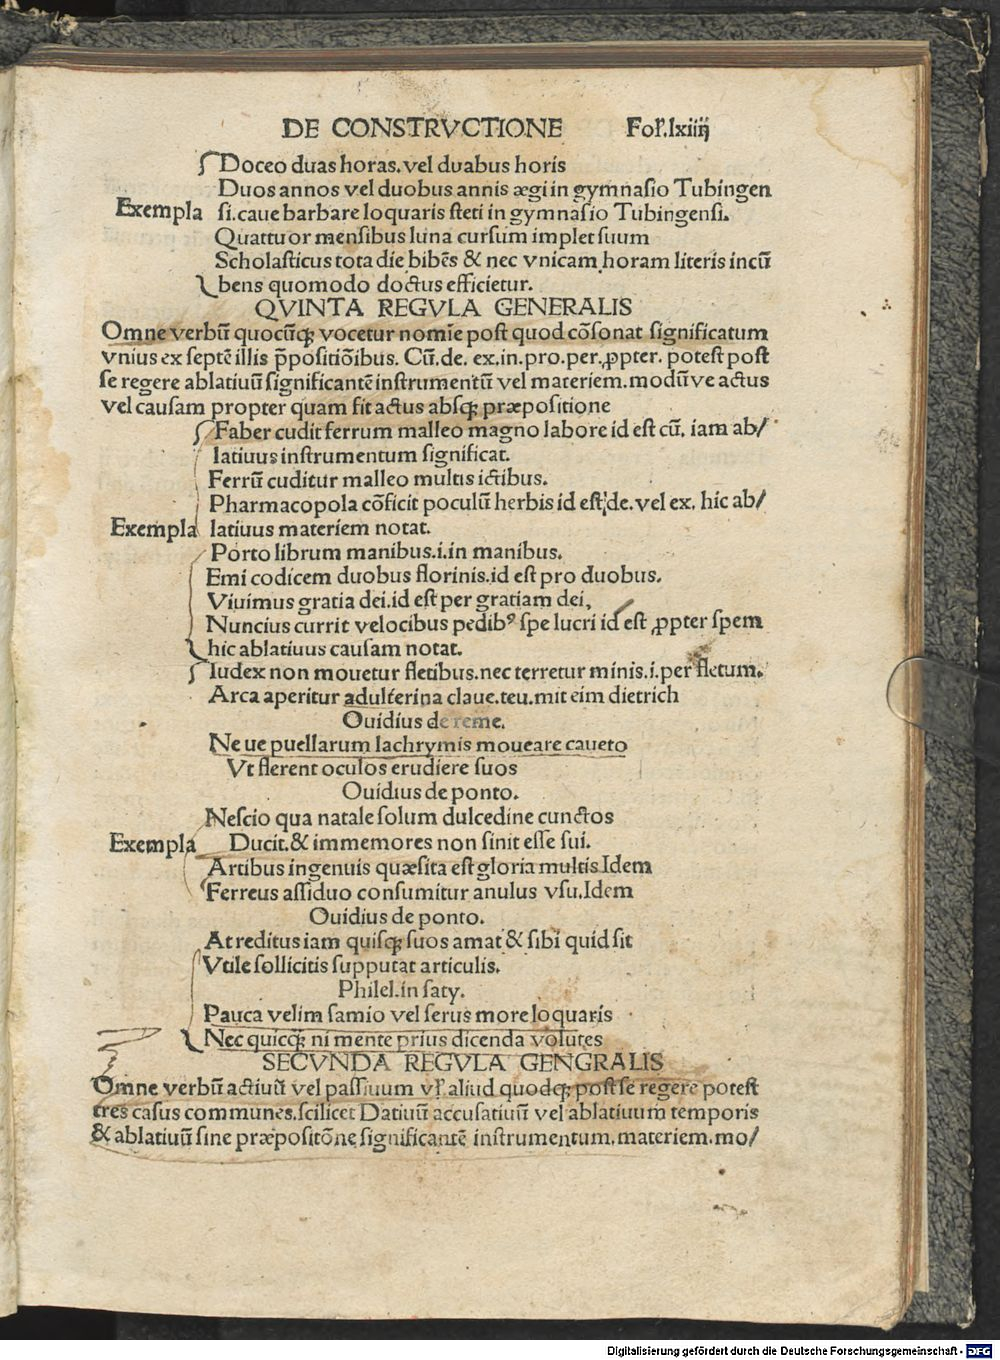 DE CONSTRVCTIONE Fol.lxiiij
Doceo duas horas.vel duabus horis
Duos annos vel duobus annis ægi in gymnasio Tubingen
Exempla si.caue barbare loquaris steti in gymnasio Tubingensi.
Quattuor mensibus luna cursum implet suum
Scholasticus tota die bibēs & nec vnicam horam literis incū
bens quomodo doctus efficietur.
QVINTA REGVLA GENERALIS
Omne verbū quocūꝗ vocetur nomīe post quod cōsonat significatum
vnius ex septē illis p̄positiōibus. Cū.de. ex.in.pro.per.ꝓpter. potest post
se regere ablatiuū significantē instrumentū vel materiem.modūve actus
vel causam propter quam fit actus absꝗ præpositione
Faber cudit ferrum malleo magno labore id est cū. iam ab/
latiuus instrumentum significat.
Ferrū cuditur malleo multis ictibus.
Pharmacopola cōficit poculū herbis id est de. vel ex. hic ab/
Exempla latiuus materiem notat.
Porto librum manibus.i.in manibus.
Emi codicem duobus florinis.id est pro duobus.
Viuimus gratia dei.id est per gratiam dei,
Nuncius currit velocibus pedibꝰ spe lucri id est ꝓpter spem
hic ablatiuus causam notat.
Iudex non mouetur fletibus.nec terretur minis.i.per fletum.
Arca aperitur adulterina claue.teu.mit eim dietrich
Ouidius de reme.
Ne ue puellarum lachrymis moueare caueto
Vt flerent oculos erudiere suos
Ouidius de ponto.
Nescio qua natale solum dulcedine cunctos
Exempla Ducit.& immemores non sinit esse sui.
Artibus ingenuis quæsita est gloria multis Idem
Ferreus assiduo consumitur anulus vsu.Idem
Ouidius de ponto.
At reditus iam quisꝗ suos amat & sibi quid sit
Vtile sollicitis supputat articulis.
Philel.in saty.
Pauca velim samio vel serus more loquaris
Nec quicꝗ ni mente prius dicenda volutes
SECVNDA REGVLA GENGRALIS
Omne verbū actiuū vel passiuum vl̓ aliud quodꝗ post se regere potest
tres casus communes.scilicet Datiuū accusatiuū vel ablatiuum temporis
& ablatiuū sine præpositōne significantē instrumentum.materiem.mo/
Digitalisierung gefördert durch die Deutsche Forschungsgemeinschaft - DFG